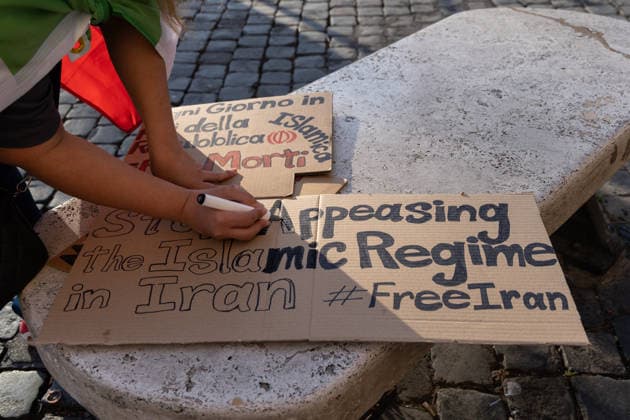 gni Giorno in
della Islamica
pubblica
Morti
Appeasing
the Islamic Regime
in Iran #FreeIran